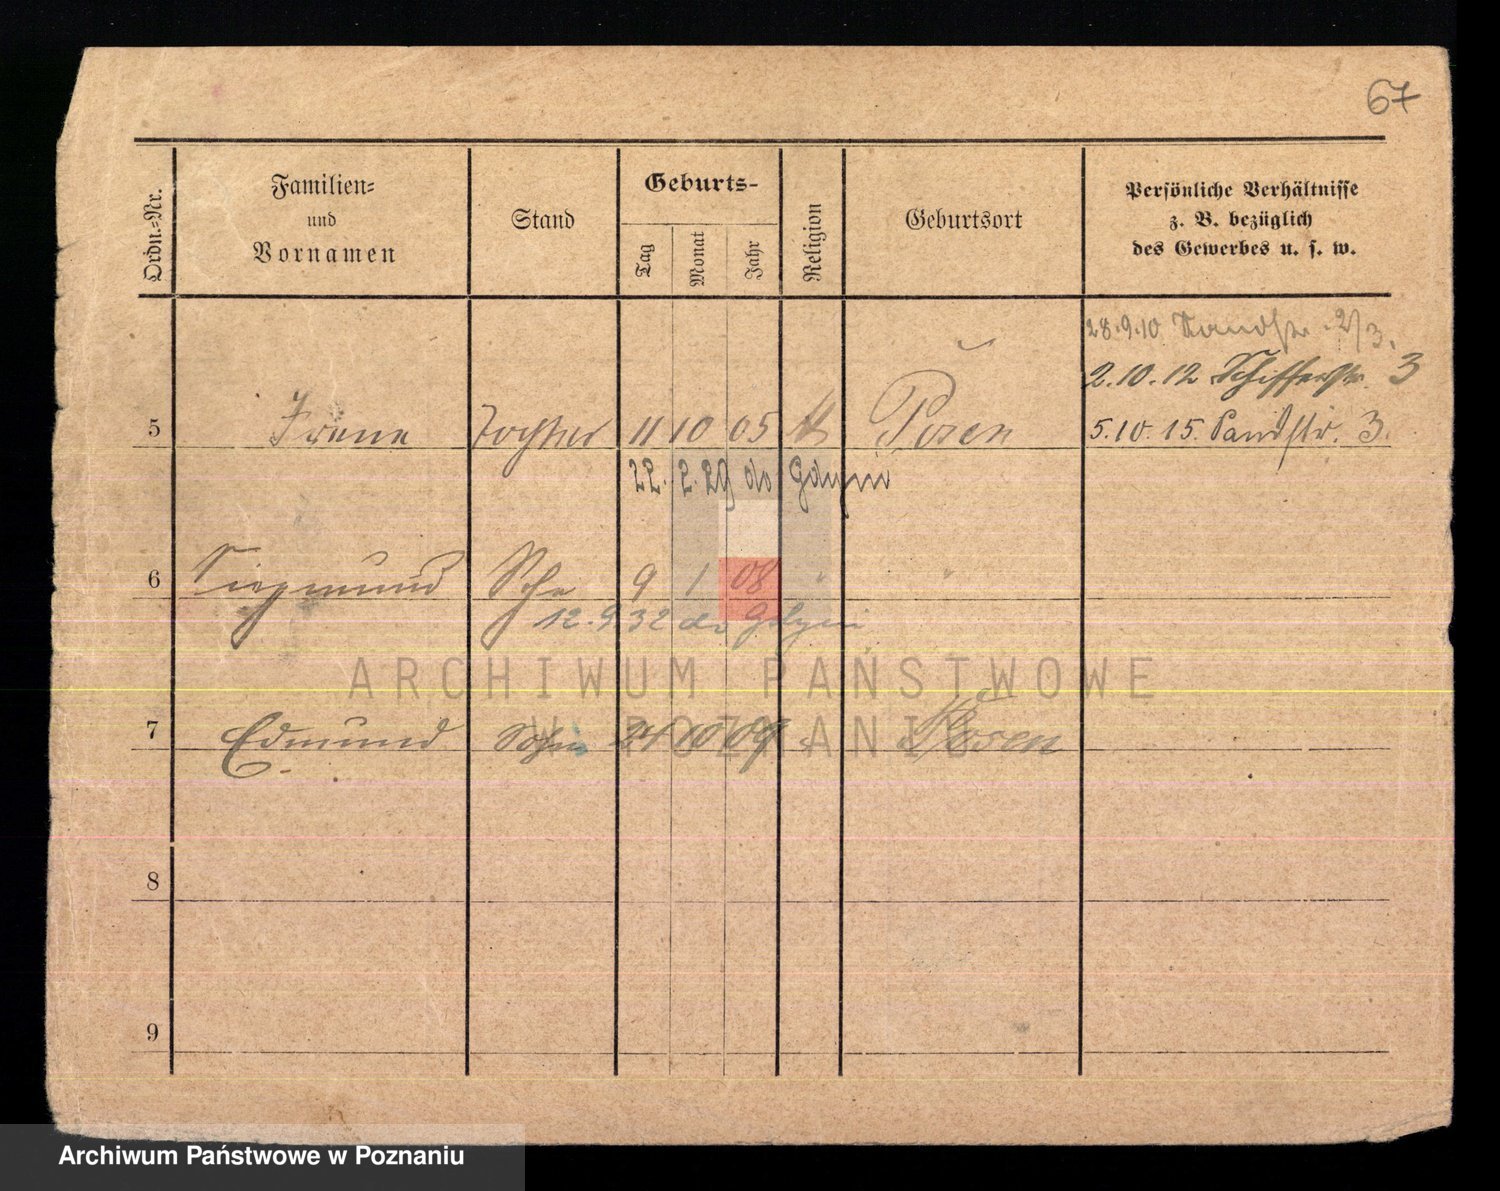 67
Ordn.-Nr.
Familien-
und
Vornamen
Stand
Geburts-
Tag
Monat
Jahr
Religion
Geburtsort
Persönliche Verhältnisse
z. B. bezüglich
des Gewerbes u. s. w.
28.9.10 2/3.
2.10.12 Schifferstr. 3
5 Irene Tochter 11 10 05 Posen 5.10.15. 3.
22. 2. 29 do Gdyni
6 Siegmund 9 1 08 " "
12.9.32 do Gdyni
ARCHIWUM PAŃSTWOWE
W POZNANIU
7 Edmund Sohn 24 10 09 Posen
8
9
Archiwum Państwowe w Poznaniu